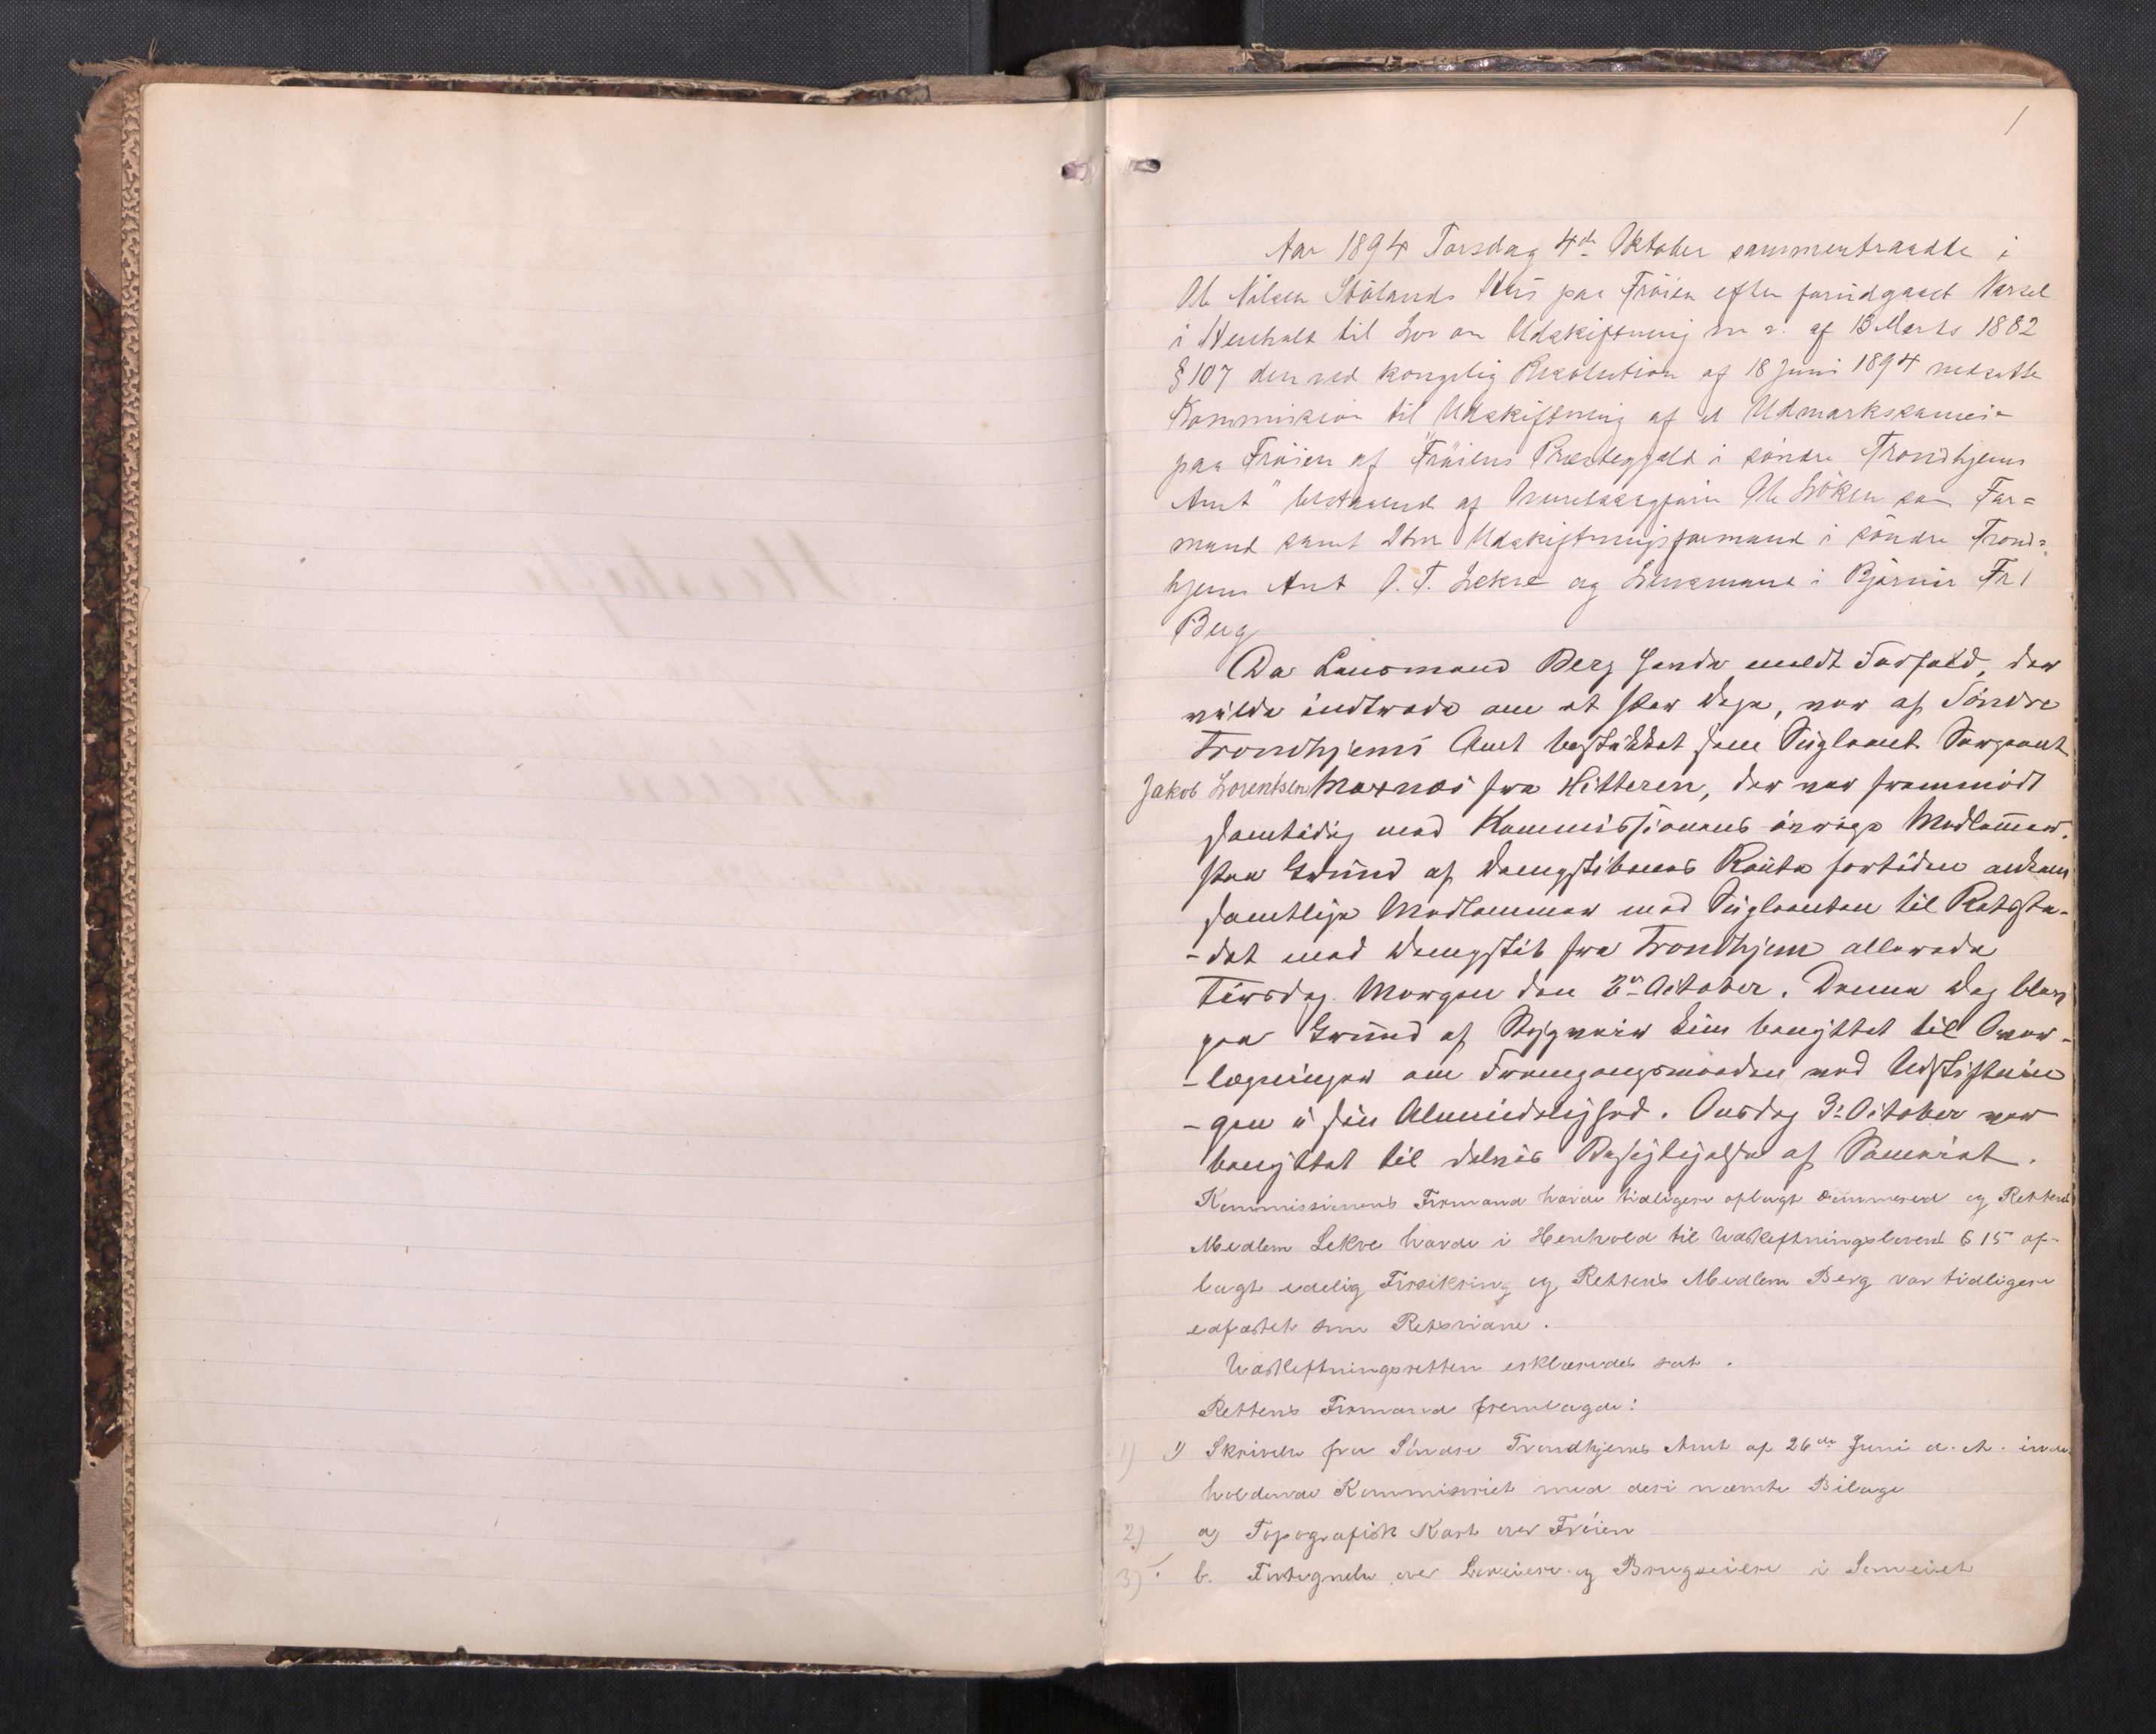 1
Aar 1894 Torsdag 4de Oktober sammentraadte i
Ole Nilsen Stölands Hus paa Fröien efter forudgaaet Varsel
i Henhold til Lov om Udskiftning m. v. af 13 Marts 1882
§ 107 den ved kongelig Resolution af 18 Juni 1894 nedsatte
Kommission til Udskiftning af et Udmarkssameie
paa Fröien af "Fröiens Præstegjeld i söndre Trondhjems
Amt" bestaaende af Ole Löken som For=
mand samt Udskiftningsformand i söndre Trond=
hjems Amt O. T. Lekve og Lensmand i Björnör Fr.
Berg
Da Lensmand Berg havde meldt Forfald, der
vilde indtræde om et Par Dage, var af Söndre
Trondhjems Amt beskikket som Supleant Sergeant
Jakob Lorentsen Mastnæs fra Hitteren, der var fremmödt
samtidig med Kommissionens övrige Medlemmer.
Paa Grund af Dampskibenes Route fortiden ankom
samtlige Medlemmer med Supleanten til Retsste-
-det med Dampskib fra Trondhjem allerede
Tirsdag Morgen den 2den October. Denne Dag blev
paa Grund af Regnveir kun benyttet til Over-
-lægninger om Fremgangsmaaden ved Udskiftnin
-gen i sin Almindelighed. Onsdag 3de October var
benyttet til delvis Besigtigelse af Sameiet.
Kommissionens Formand havde tidligere aflagt Dommered og Rettens
Medlem Lekve havde i Henhold til Udskiftningslovens § 15 af-
lagt edelig Forsikring og Rettens Medlem Berg var tidligere
edfæstet som Retsvidne.
Udskiftningsretten erklæredes sat.
Rettens Formand fremlagde:
1) 1) Skrivelse fra Söndre Trondhjems Amt af 26de Juni d. A. inde-
holdende Kommissoriet med deri nævnte Bilage
2) a) Topografisk Kart over Fröien
3) b. Fortegnelse over Leveiere og Brugseiere i Sameiet